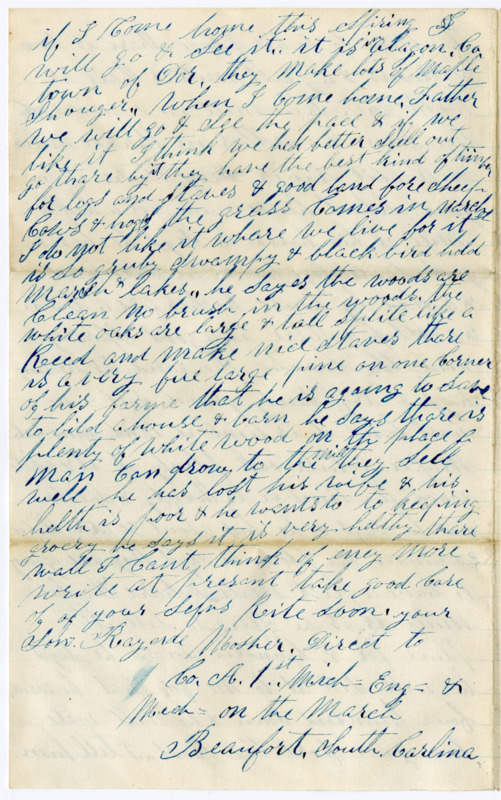 if I Come home this Spring I
will go & see it. it is in alagon. Co
town of Dor. they make lots of Maple
Shouger,, when I Come home. Father
we will go & see the place & if we
like it I think we had better Sell out
go thare by they have the best kind of timber
for logs and staves & good land fore Sheep
Cows & hogs the grass Comes in march
I do not like it whare we live for it
is so gruby swampy & black bird hold
Marsh & lakes,, he Sayes the woods are
Clean no brush in the woods. the
white oaks are large & tall Splite like a
Reed and Make nid Staves thare
is a very few large pine on one Corner
of his farme that he is agoing to Save
to bild a house & barn he Says there is
plenty of white wood on the place a
man Can drow to the they Sell
well he has lost his wife & his
helth is poor & he wants to to keeping
grocry he Says it is very helthy thare
wall I Cant think of eney more
write at present take good Care
of of your Sefvs Rite Soon. your
Son. Raysite Mosher. Direct to
Co. A. 1.st Mich- Eng- &
Mech- on the March
Beaufort, South. Carlina